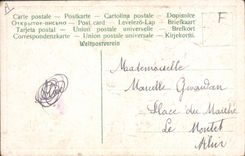 Carte postale - Postkarte - Cartolina postale - Dopisnice
Открытое письмо - Post card - Levelező-Lap - Briefkaart
Tarjeta postal - Union postale universelle - Brefkort
Correspondenzkarte - Union postale universelle - Kirjekortti.
Weltpostverein
F
Mademoiselle
Marcelle
Place du Marché
Le Montet